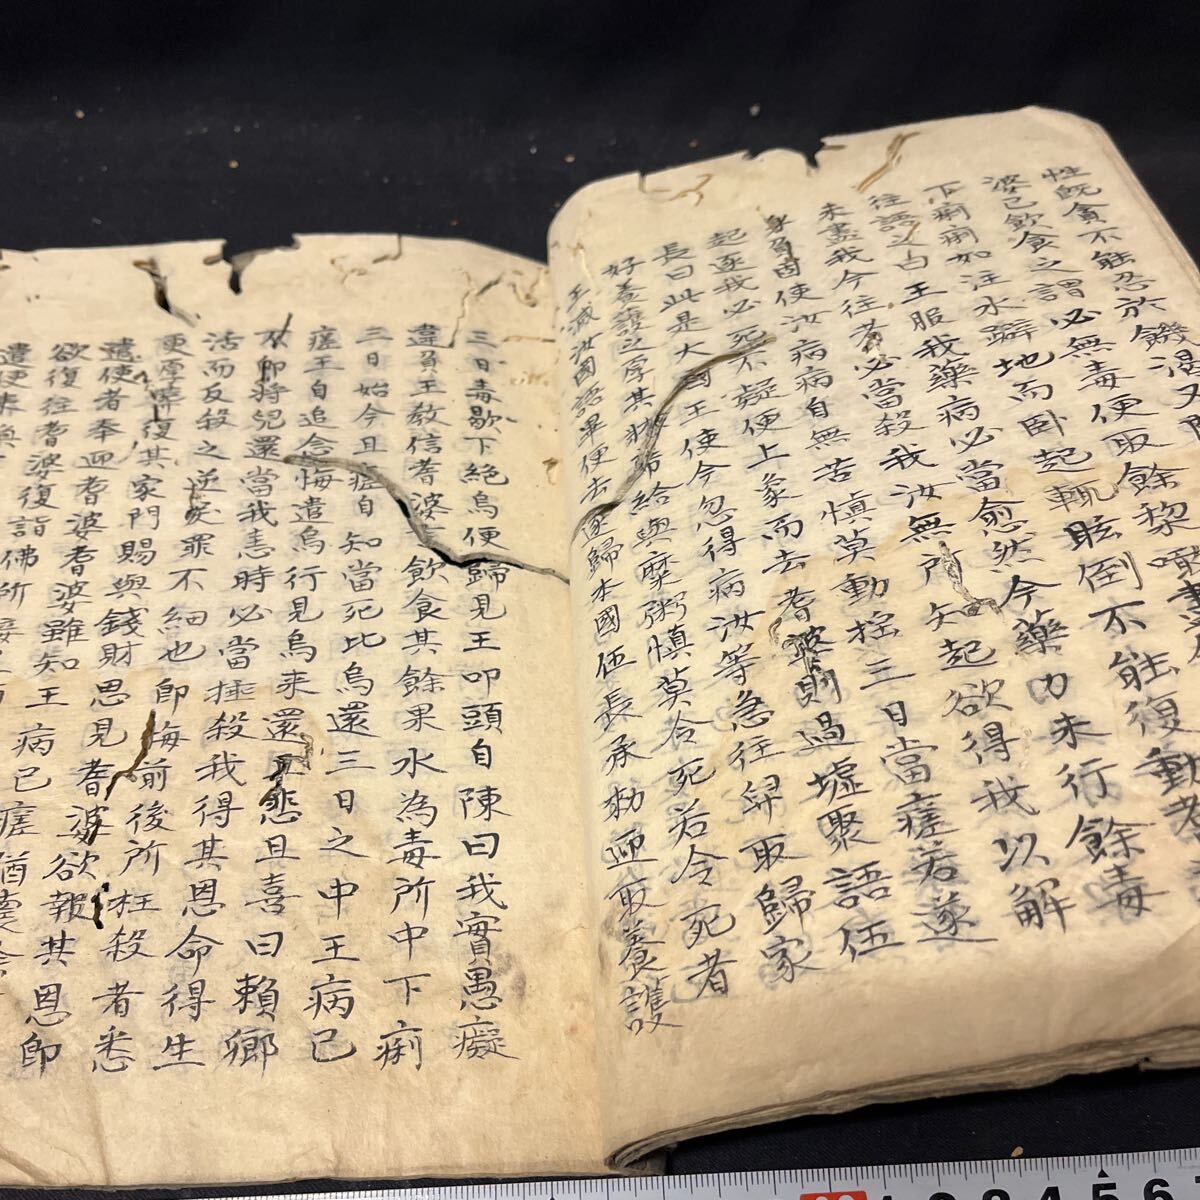 性既貪不能忍於饑渴又
婆已飲食之謂必無毒便取餘梨噉
下痢痢如注水躃地而卧起輒眩倒不能復動耆
往語之白王服我藥病必當愈然今藥力未行餘毒
未盡我今往者必當殺我汝無所知起欲得我以解
身負固使汝病病自無苦慎莫動搖三日當瘥若遂
起逐我必死不疑便上象而去耆婆則過墟聚語伍
長曰此是大國王使今忽得病汝等急往舁取歸家
好養護之厚其牀蓐給與糜粥慎莫令死若令死者
王滅汝國語畢便去遂歸本國伍長承勑迎取養護
三日毒歇下絕烏便歸見王叩頭自陳曰我實愚癡
違負王教信耆婆飲食其餘果水為毒所中下痢
三日始今且瘥自知當死比烏還三日之中王病已
瘥王自追念悔遣烏行見烏来還且悲且喜曰賴卿
不即將兒還當我恚時必當捶殺我得其恩命得生
活而反殺之逆灾罪不細也即悔前後所枉殺者悉
更厚葬復其家門賜與錢財思見耆婆欲報其恩即
遣使者奉迎耆婆耆婆雖知王病已瘥猶
欲復往耆婆復詣佛所
遣使来